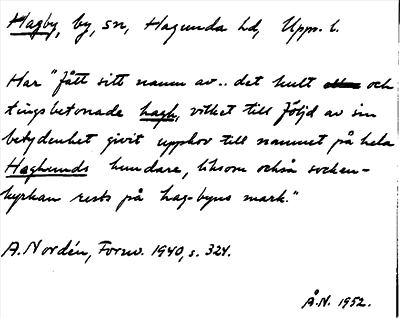 Hagby, by, sn, Hagunda hd, Upps. l.
Har "fått sitt namn av .. det kult och
tingsbetonade hagh, vilket till följd av sin
betydenhet givit upphov till namnet på hela
Haghunds hundare, liksom också socken-
kyrkan rests på hag-byns mark."
A. Nordén, Fornv. 1940, s. 324.
Å.N. 1952.